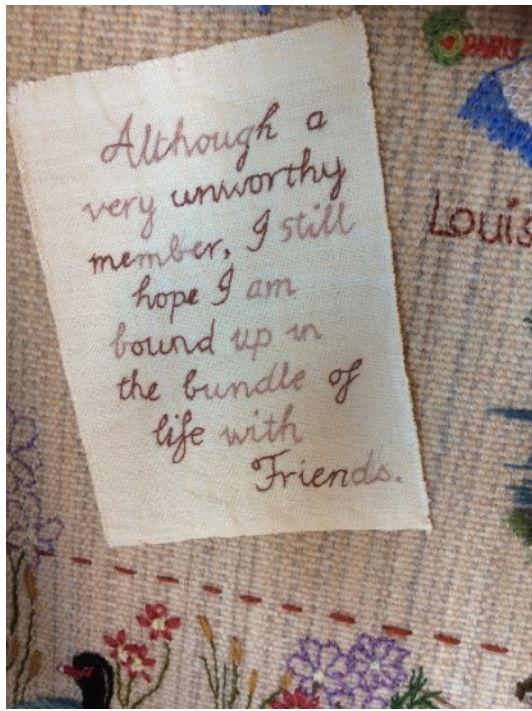 PARIS
Louis
Although a
very unworthy
member, I still
hope I am
bound up in
the bundle of
life with
Friends.